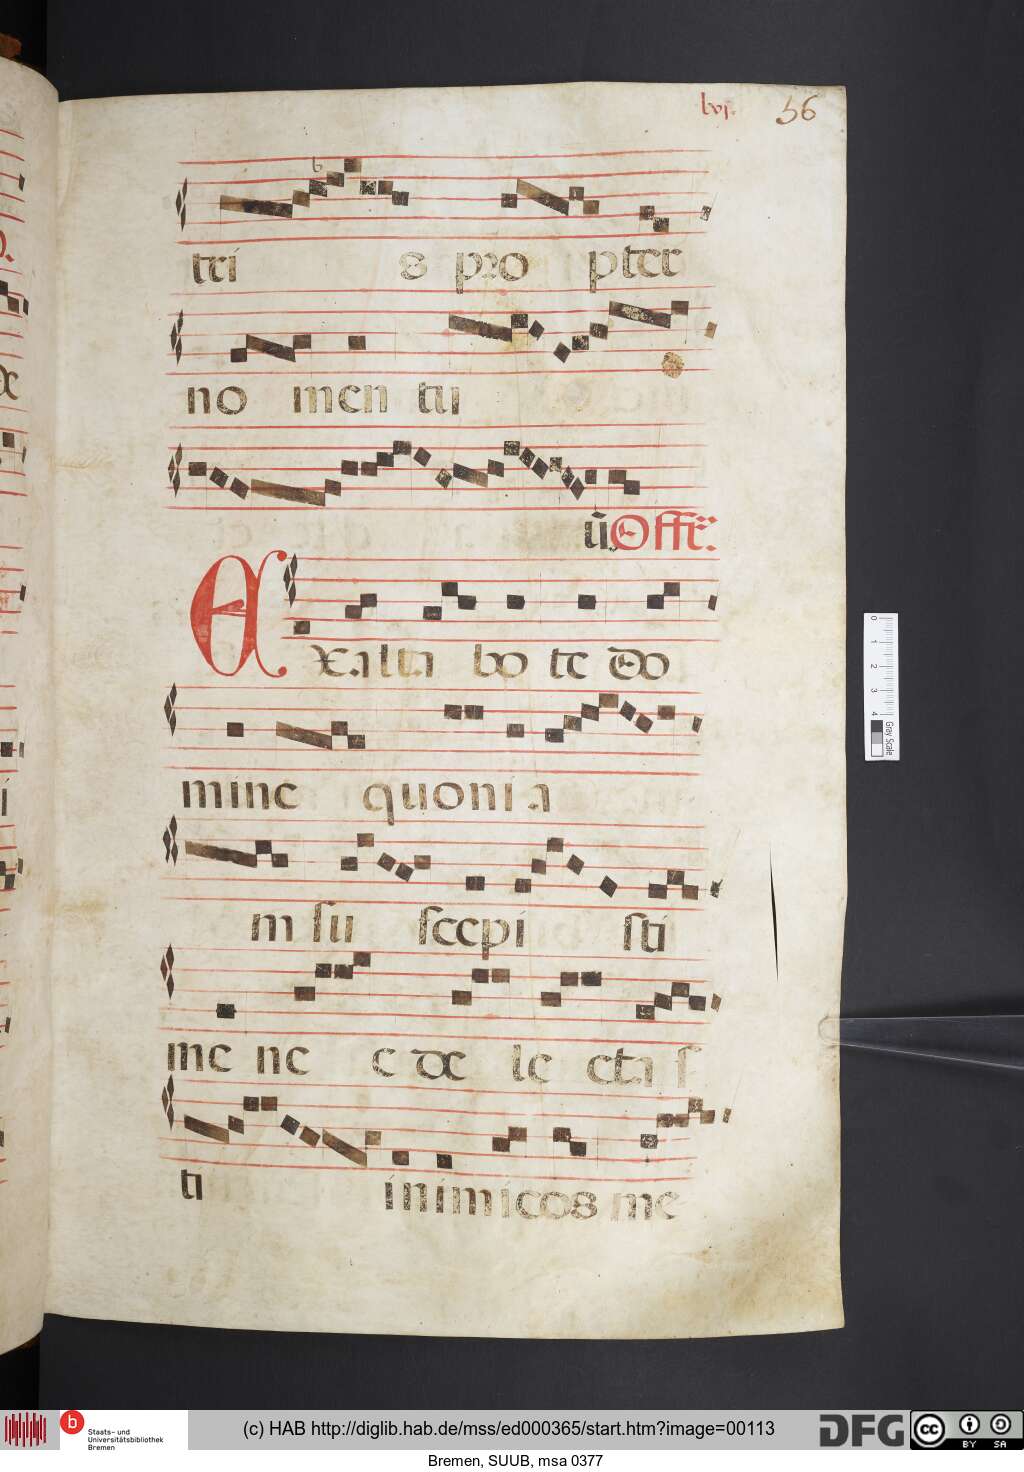 lvj. 56
b
tri s pro pter
no men tu
ū Offr̄.
Exalta bo te do
mine quonia
m su scepi sti
me ne c de le cta s
ti inimicos me
0 1 2 3 4 Gray Scale
b Staats- und Universitätsbibliothek Bremen
(c) HAB http://diglib.hab.de/mss/ed000365/start.htm?image=00113
DFG
cc BY SA
Bremen, SUUB, msa 0377